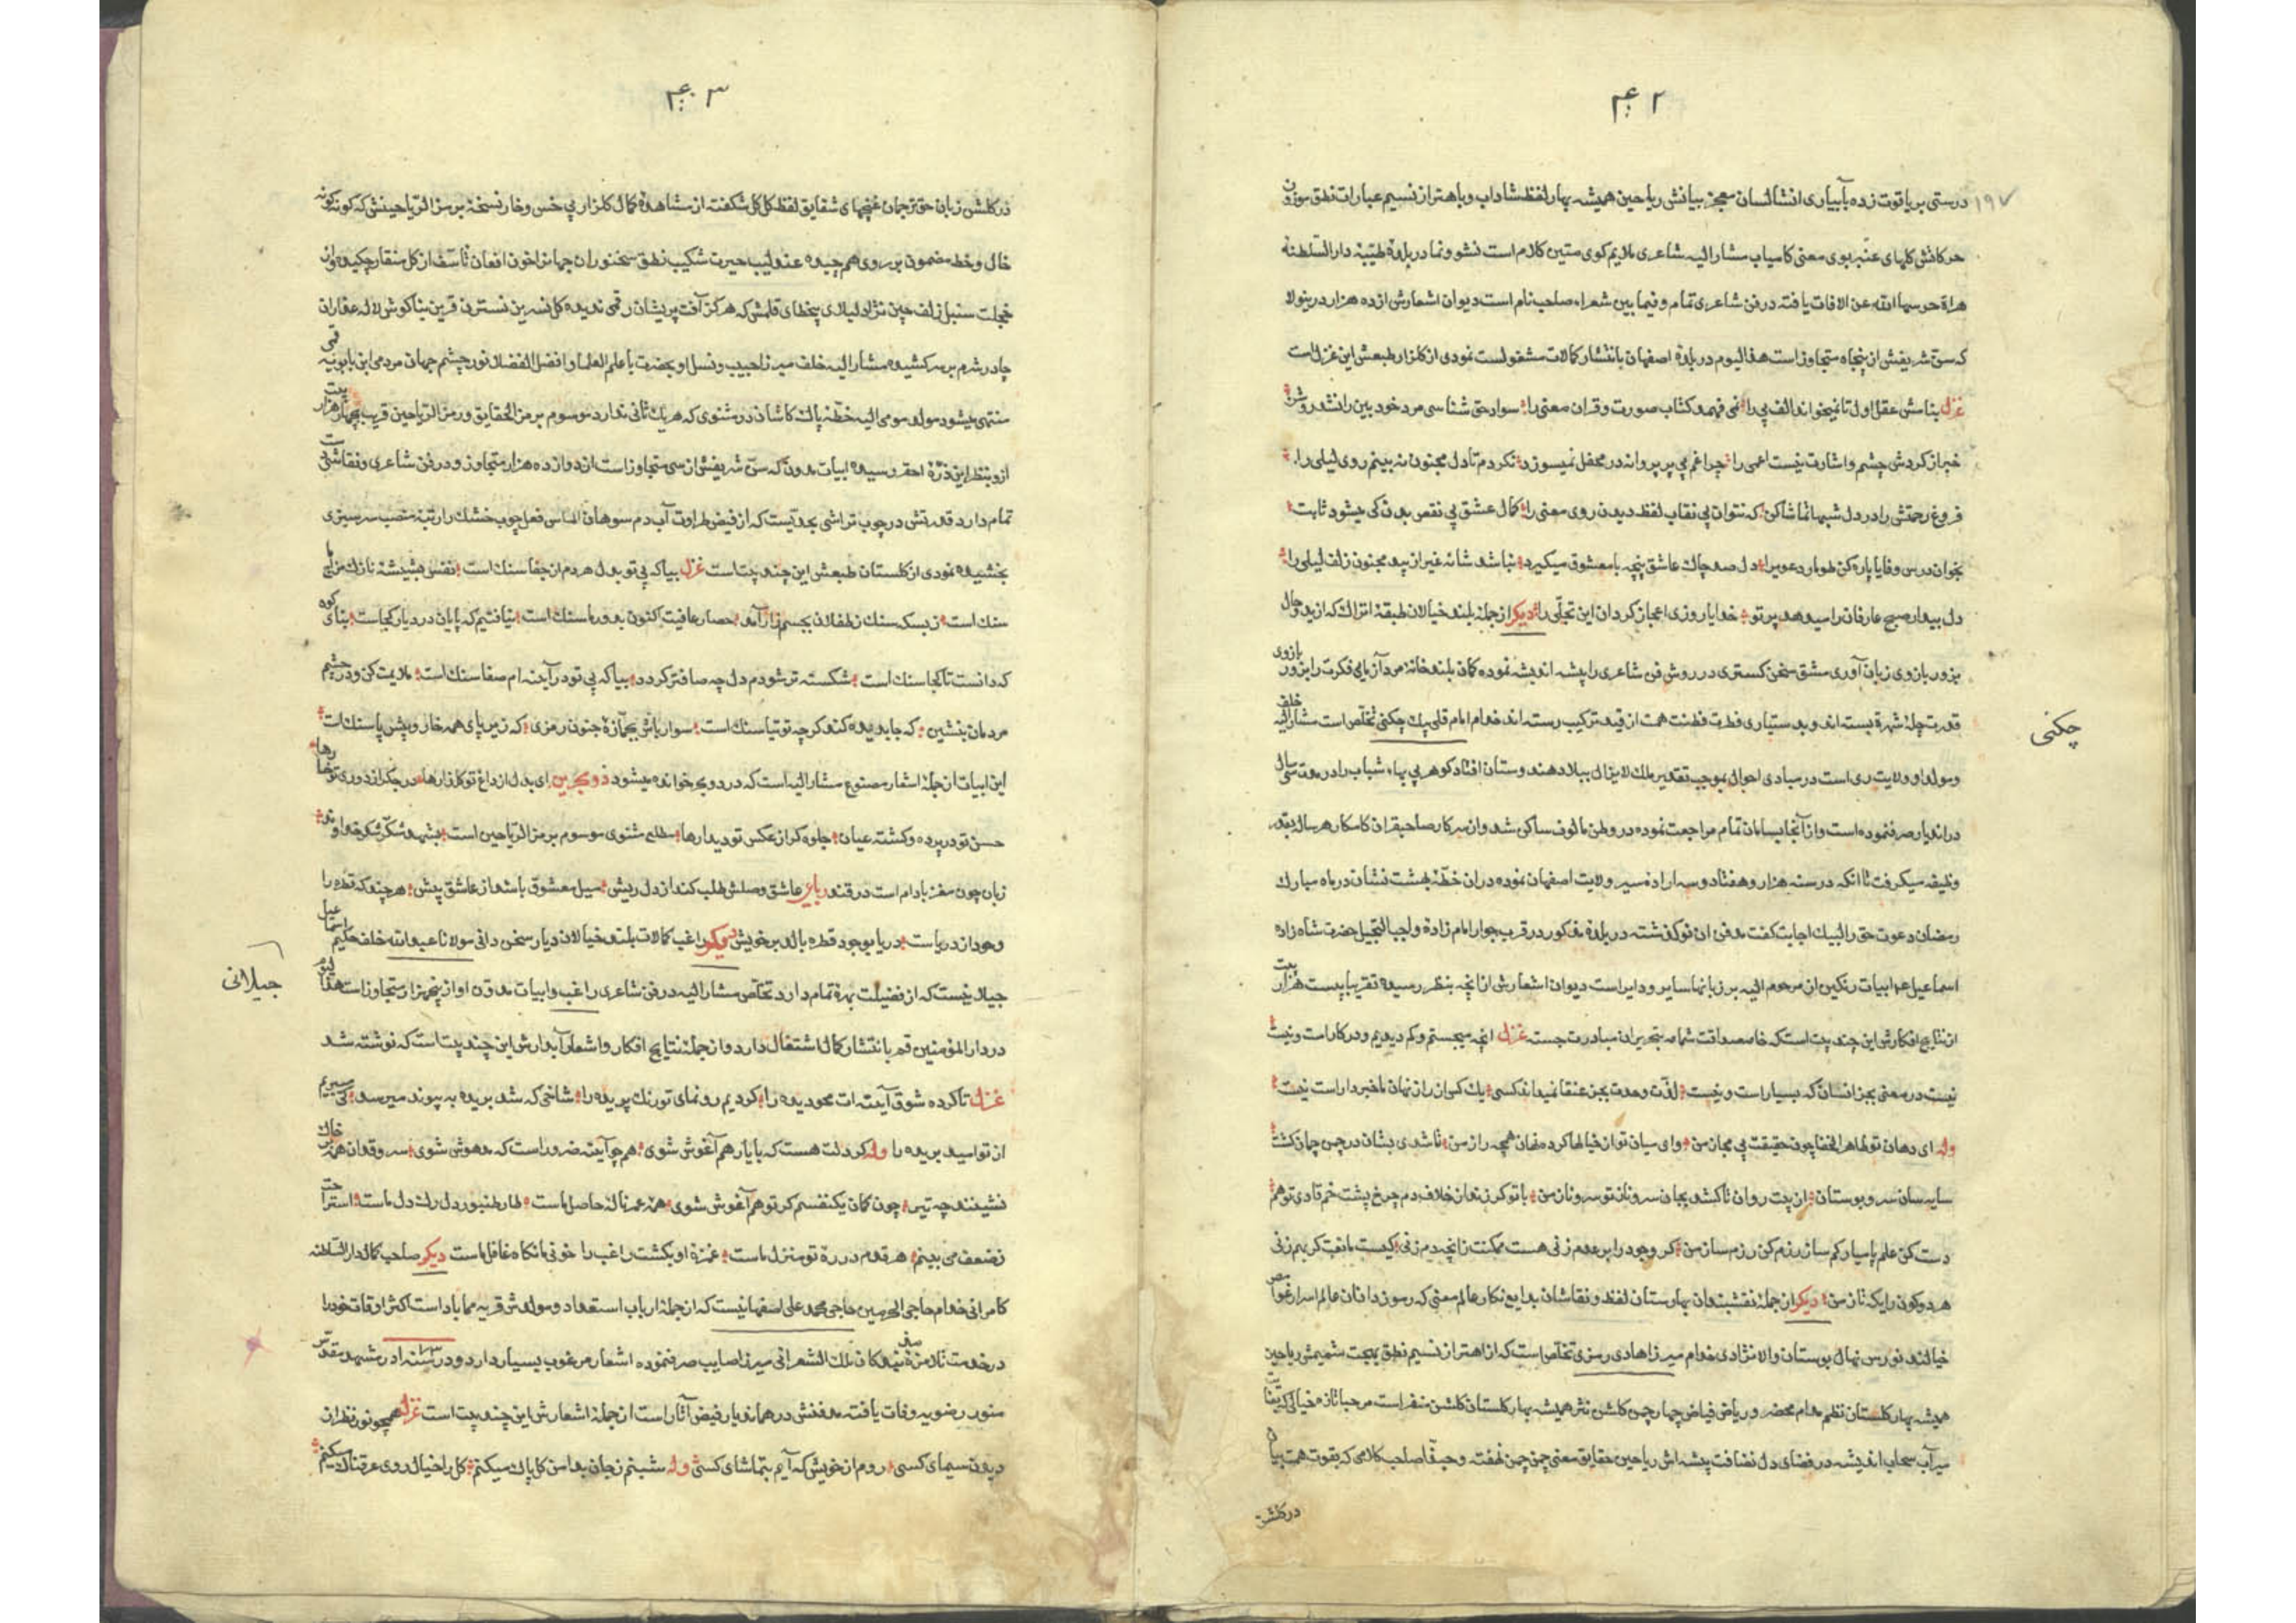 ۴۰۲
۱۹۷
درستی بر یاقوت زده بآبیاری انشا لسان معجز بیانش ریاحین همیشه بهار لفظ شاداب و باهتزاز نسیم عبارات نطق موزون
حرکاتش کلهای عنبر بوی معنی کامیاب مشار الیه شاعری ملایم کوی متین کلام است نشو و نما در بلدهٔ طیبهٔ دار السلطنهٔ
هراة حرسها الله عن الافات یافته در فن شاعری تمام و فیما بین شعراء صاحب نام است دیوان اشعارش از ده هزار درینولا
که سن شریفش از پنجاه متجاوز است هذا الیوم در بلدهٔ اصفهان بانتشار کمالات مشغولست نمودی از کلزار طبعش این غزل است
غزل بنامش عقل اول تا نمیخواند الف بی را نمی فهمد کتاب صورت و قران معنی را سواد حق شناسی مرد خود بین را نشد روشن
خبر از کردش چشم و اشارت نیست اعمی را چراغم بی پر پروانه در محفل نمیسوزد نکردم تا دل مجنون نه بینم روی لیلی را
فروغ رحمتش را در دل شبها تماشا کن که نتوان بی نقاب لفظ دیدن روی معنی را کمال عشق بی نقص بدن کی میشود ثابت
بخوان درس وفایا پاره کن طومار دعوی را دل صد چاک عاشق پنجه با معشوق میکیرد نباشد شانه غیر از بید مجنون زلف لیلی را
دل بیدار صبح عارفان را میدهد پرتو خدایا روزی اعجاز کردان این تجلی را دیکر از جمله بلند خیالان طبقهٔ اتراک که از بدو حال
بزور بازوی زبان آوری مشق سخن کستری در روش فن شاعری را پیشه اندیشه نموده کمان بلند خانهٔ مرد آزمایی فکرت را بزور بازوی
قدرت چلهٔ شهرة بسته اند و بدستیاری فطرت فطنت همت از قید ترکیب رسته اند خدام امام قلی بیک چکنی تخلص است مشار الیه خلف
چکنی
و مولد او ولایت ری است در مبادی احوال بموجب تقدیر ملک لایزال ببلاد هندوستان افتاد کوهر بی بهاء شباب را در مدت سی سال
در اندیار صرف نموده است و از آنجا بسامان تمام مراجعت نموده در وطن مالوف ساکن شد و از سرکار صاحبقران کامکار هر ساله بقدر
وظیفه میکرفت تا انکه در سنه هزار و هفتاد و سه اراده سیر ولایت اصفهان نموده دران خطهٔ بهشت نشان در ماه مبارک
رمضان دعوت حق را لبیک اجابت کفت مدفن ان نو کذشته در بلدهٔ مذکور در قرب جوار امام زادهٔ واجب التبجیل حضرت شاه زاده
اسماعیل عم ابیات رنکین ان مرحوم الیه بر زبانها سایر و دایر است دیوان اشعارش از انچه بنظر رسیده تقریبا بیست هزار بیت
از نتایج افکارش این چند بیت است که خامه صداقت شمامه بتحریر ان مبادرت جسته غزل انچه میجستم و کم دیدیم و در کار است و نیست
نیست در معنی بجز انسان که بسیار است و نیست لذت وحدت بجز عنقا نمیداند کسی یک کس از راز نهان ما خبردار است نیست
وله ای دهان تو ظاهر الخفا چون حقیقت بی مجاز من وای میان تو از خیالها کرده مفان همچه راز من تا شدی بشان در چمن چمان کشت
سایه سان سرو بوستان از پیت روان تا کشد بجان سرو ناز تو سرو ناز من با تو کر زند از خلاف دم چرخ پشت خم قادی توهم
دست کن علم پا بیار کم ساز رزم کن رزم ساز من کر وجود را بر عدم زنی هست ممکنت زانچه دم زنی کیست مانعت کر بهم زنی
هر دو کون را یکه تاز من دیکر از جملهٔ نقشبندان بهارستان لفظ و نقاشان بدایع نکار عالم معنی که رموز دانان عالم اسرار غوامض
خیالند نورس نهال بوستان والا نژادی خدام میرزا هادی رمزی تخلص است که از اهتزاز نسیم نطق بهجت شمیمش ریاحین
همیشه بهار کلستان نظم مدام مخضر و ریاض فیاض چهار چمن کلشن نثر همیشه بهار کلستان کلشن منفر است مرحبا تازه خیالی که بقنات
میرآب سحاب اندیشه در فضای دل نضافت پیشه اش ریاحین حقایق معنی چمن چمن نهفته وحبذا صاحب کلامی که بقوت همت بیان
در کلشن
۴۰۳
در کلشن زبان حق ترجمان غنچهای شقایق لفظ کل کل شکفته از مشاهدهٔ کمال کلزار بی خس و خار نسخهٔ برمز الریاحینش که کونه کونه
خال و خط مضمون بر روی هم چیده عندلیب حیرت شکیب نطق سخنوران جهان را خون افعان تاسف از کل منقار چکیده و از
خجلت سنبل زلف چین نژاد لیلای بیخطای قلمش که هرکز آفت پریشان رقمی ندیده کل نسرین نسترن قرین بناکوش لاله عذاران
چادر شرم بر سر کشیده مشار الیه خلف میرزا حبیب و نسل او بحضرت با علم العلما و افضل الفضلا نور چشم جهان مردمی ابن بابویه قمی
منتهی میشود مولد مومی الیه خطهٔ پاک کاشان در مثنوی که هر یک ثانی ندارد موسوم برمز الحقایق و رمز الریاحین قریب بچهار هزار بیت
ازو بنظر این ذرهٔ احقر رسیده ابیات مدون که سن شریفش از سی متجاوز است از دوازده هزار متجاوز و در فن شاعری و نقاشی دست
تمام دارد قدرتش در چوب تراشی بحدیست که از فیض طراوت آب دم سوهان الماس فعل چوب خشک را رتبهٔ منصب سر سبزی
بخشیده نمودی از کلستان طبعش این چند بیت است غزل بیا که بی تو بدل هر دم از جفا سنک است نفس بشیشهٔ نازک مزاج ما
سنک است ز بسکه سنک ز طفلان بجسم زار آمد حصار عافیت اکنون بدور ما سنک است نیافتیم که پایان درد یار کجاست بنای کوه
که دانست تا کجا سنک است شکسته تر شودم دل چه صاف تر کردد بیا که بی تو در آینه ام صفا سنک است ملایمت کن و در چشم
مردمان بنشین که جا بدیده کند کرچه توتیا سنک است سوار باش بجمازهٔ جنون رمزی که زیر پای همه خار و پیش پا سنک است
این ابیات از جمله اشعار مصنوع مشار الیه است که در دو بحر خوانده میشود ذو بحرین ای بدل از داغ تو کلزارها در جکر از دوری تو خارها
حسن تو در پرده و کشته عیان جلوه کر از عکس تو دیدارها مطلع مثنوی موسوم برمز الریاحین است بشهد شکر شکر خداوند
زبان چون مغز بادام است در قند رباعی عاشق وصلش طلب کند از دل ریش میل معشوق باشد از عاشق بیش هر چند که قطره را
وجود از دریاست دریا بوجود قطره بالد بر خویش دیکر راغب کمالات بلند خیالان دیار سخن دانی مولانا عبد الله خلف حکیم اسماعیل
جیلانیست که از فضیلت بهرهٔ تمام دارد تخلص مشار الیه در فن شاعری راغب و ابیات مدون او از پنجهزار متجاوز است هذا الیوم
جیلانی
در دار المؤمنین قم بانتشار کمال اشتغال دارد و از جملهٔ نتایج افکار و اشعار آبدارش این چند بیت است که نوشته شد
غزل تا کرده شوق آینه ات محو دیده را کردیم رونمای تو رنک پریده را شاخی که شد بریده به پیوند میرسد کی میبریم
از تو امید بریده را وله کر دلت هست که با یار هم آغوش شوی همچو آینه ضرور است که مدهوش شوی سرو قدان همه بر خاک
نشینند چه تیر چون کمان یکنفسم کر تو هم آغوش شوی همه عمر ناله حاصل ماست تار طنبور دل رک دل ماست استراحت
ز ضعف می بینم هر قدم در ره تو منزل ماست غمزهٔ او بکشت راغب را خونی ما نکاه غافل ماست دیکر صاحب کمال دار السلطنه
کامرانی خدام حاجی الحرمین حاجی محمد علی اصفهانیست که از جمله ارباب استعداد و مولدش قریه مماباد است اکثر اوقات خود را
در خدمت تلامزهٔ بندکان ملک الشعرانی میرزا صایب صرف نموده اشعار مرغوب بسیار دارد و در سنه در مشهد مقدس
منور رضویه وفات یافته مدفنش در همان دیار فیض آثار است از جملهٔ اشعارش این چند بیت است غزل همچو نور نظر از
دیدن سیمای کسی روم از خویش که آیم بتماشای کسی وله شبنم ز جان بدامن کل پاک میکنم کل را خیال روی عرقناک میکنم